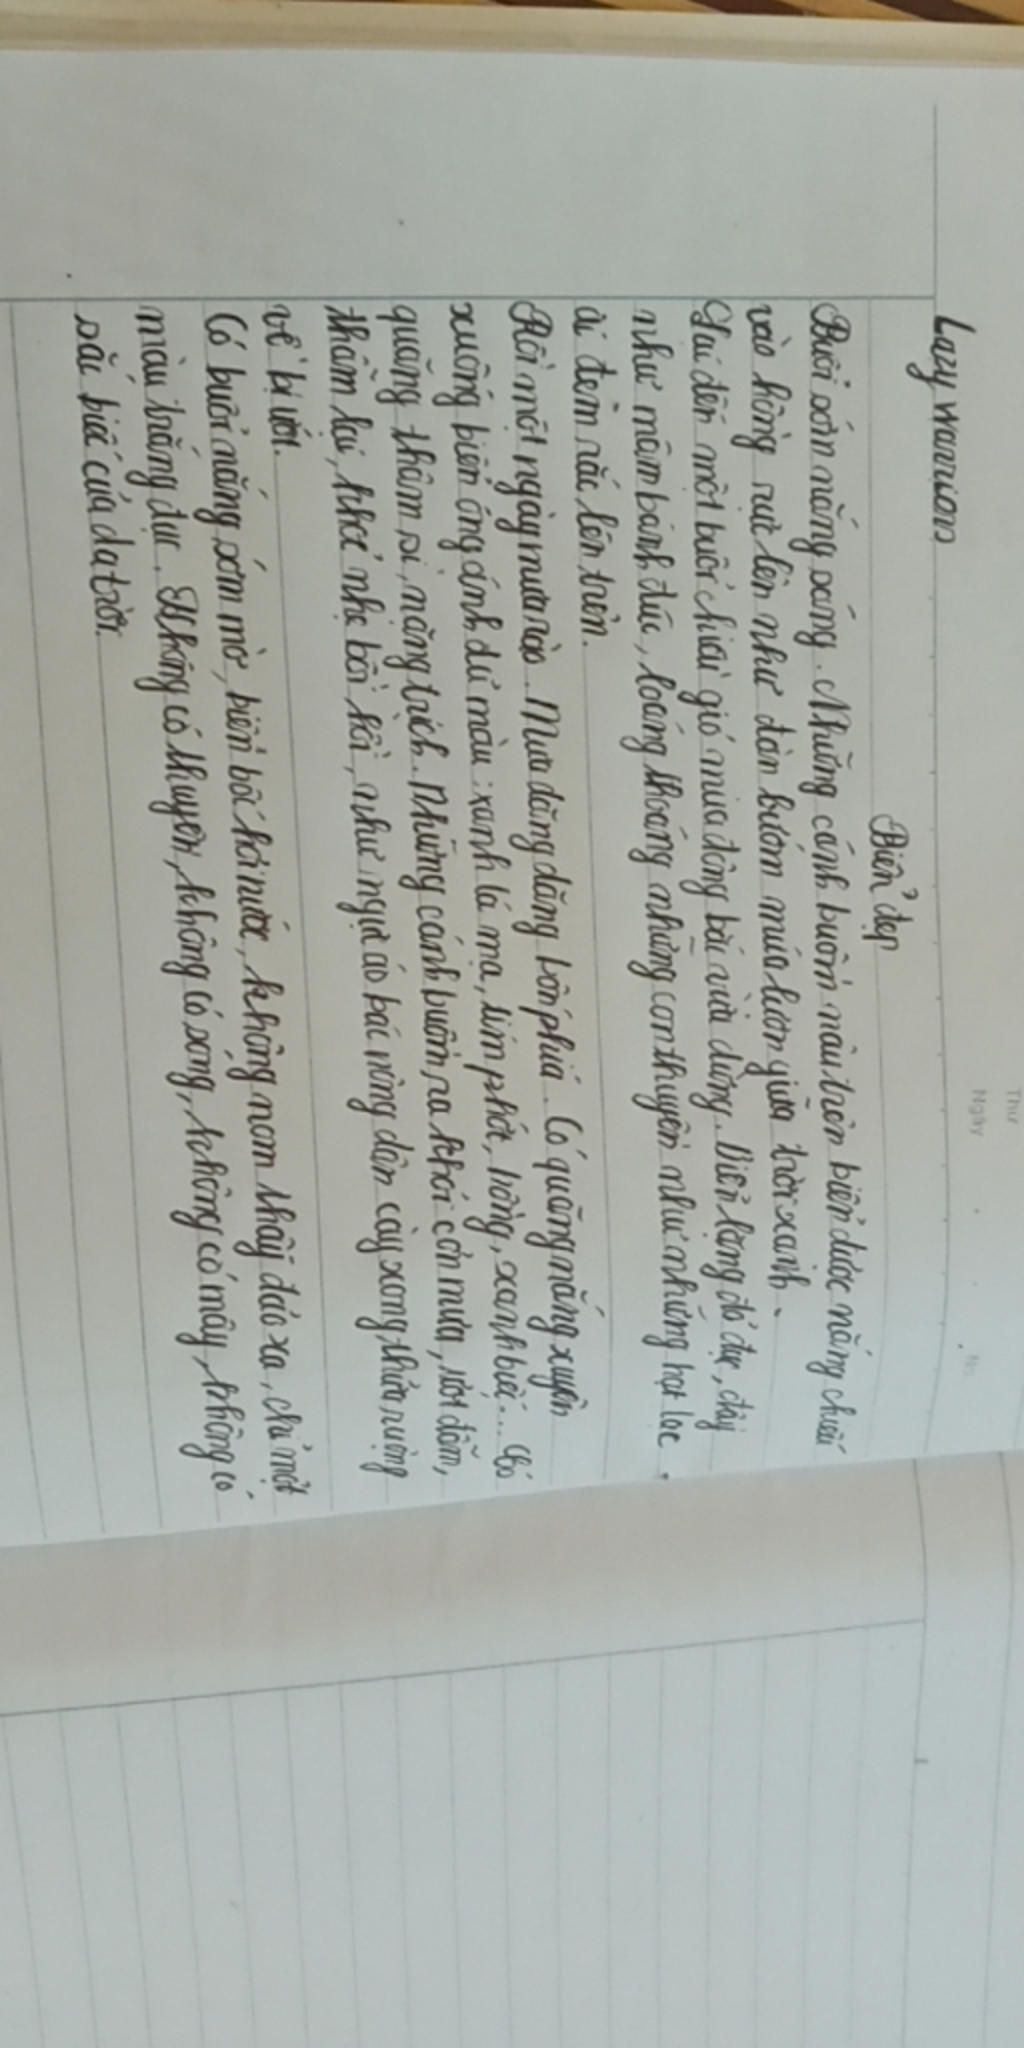 Thứ
Ngày
No.
Lazy warrior
Biển đẹp
Buổi sớm nắng sáng. Những cánh buồm nâu trên biển được nắng chiếu
vào hồng rực lên như đàn bướm múa lượn giữa trời xanh.
Lại đến một buổi chiều gió mùa đông bắc vừa dừng. Biển lặng đỏ đục, đầy
như mâm bánh đúc, loáng thoáng những con thuyền như những hạt lạc
ai đem rắc lên trên.
Rồi một ngày mưa rào. Mưa dăng dăng bốn phía. Có quãng nắng xuyên
xuống biển óng ánh đủ màu: xanh lá mạ, tím phớt, hồng, xanh biếc... Có
quãng thâm sì, nặng trịch. Những cánh buồm ra khỏi cơn mưa, ướt đẫm,
thẫm lại, khoẻ nhẹ bồi hồi, như ngực áo bác nông dân cày xong thửa ruộng
về bị ướt.
Có buổi nắng sớm mờ, biển bốc hơi nước, không nom thấy đảo xa, chỉ một
màu trắng đục. Không có thuyền, không có sóng, không có mây, không có
sắc biếc của da trời.